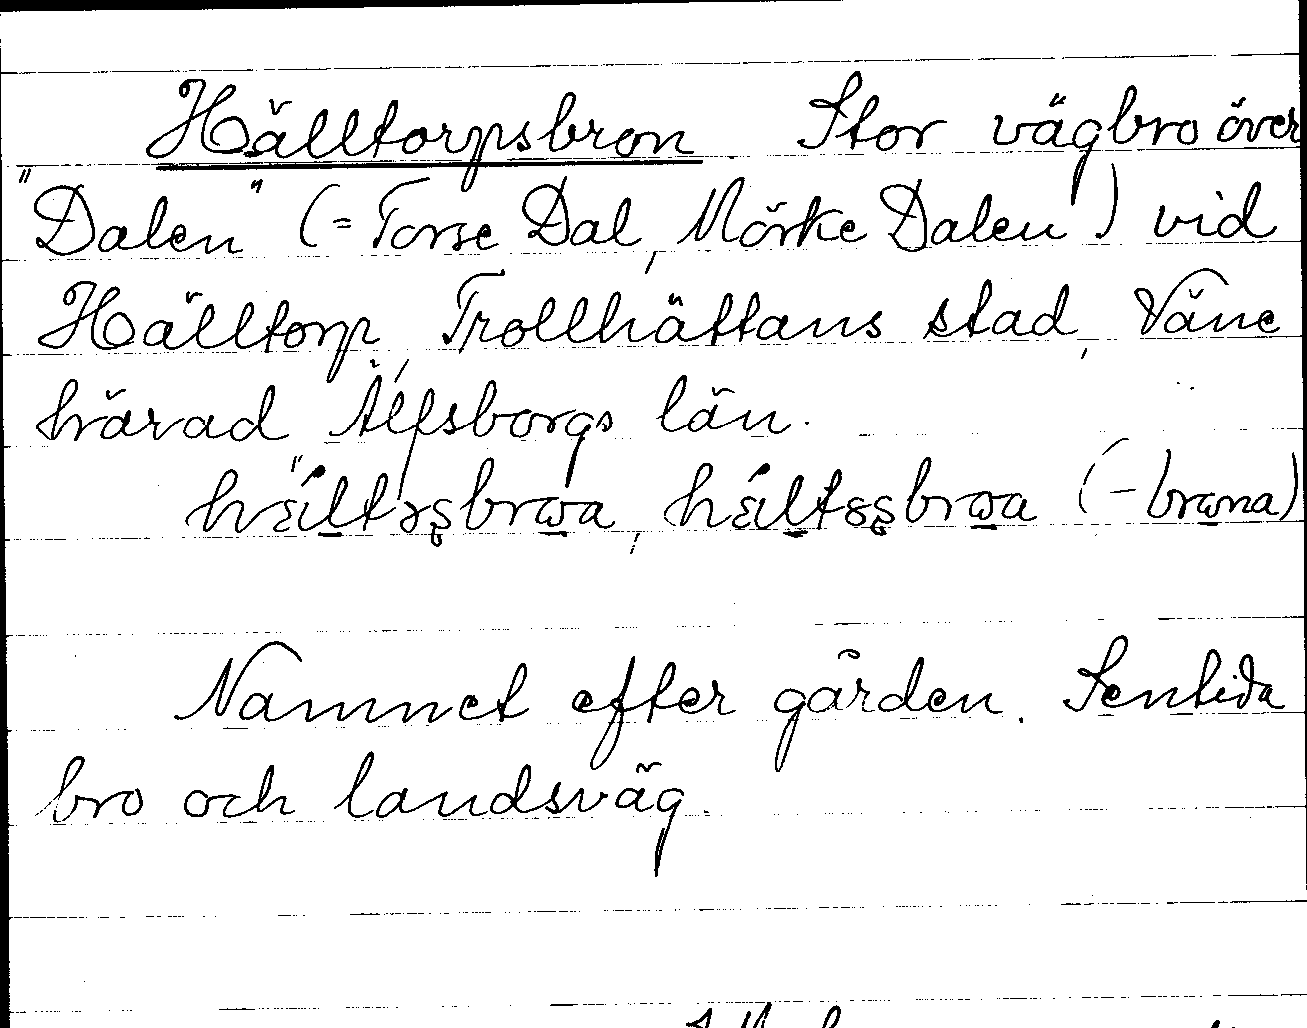 Hälltorpsbron Stor vägbro över
"Dalen" (= Torse Dal, Mörke Dalen) vid
Hälltorp, Trollhättans stad, Väne
härad Älfsborgs län.
(-brωna)
Namnet efter gården. Sentida
bro och landsväg.